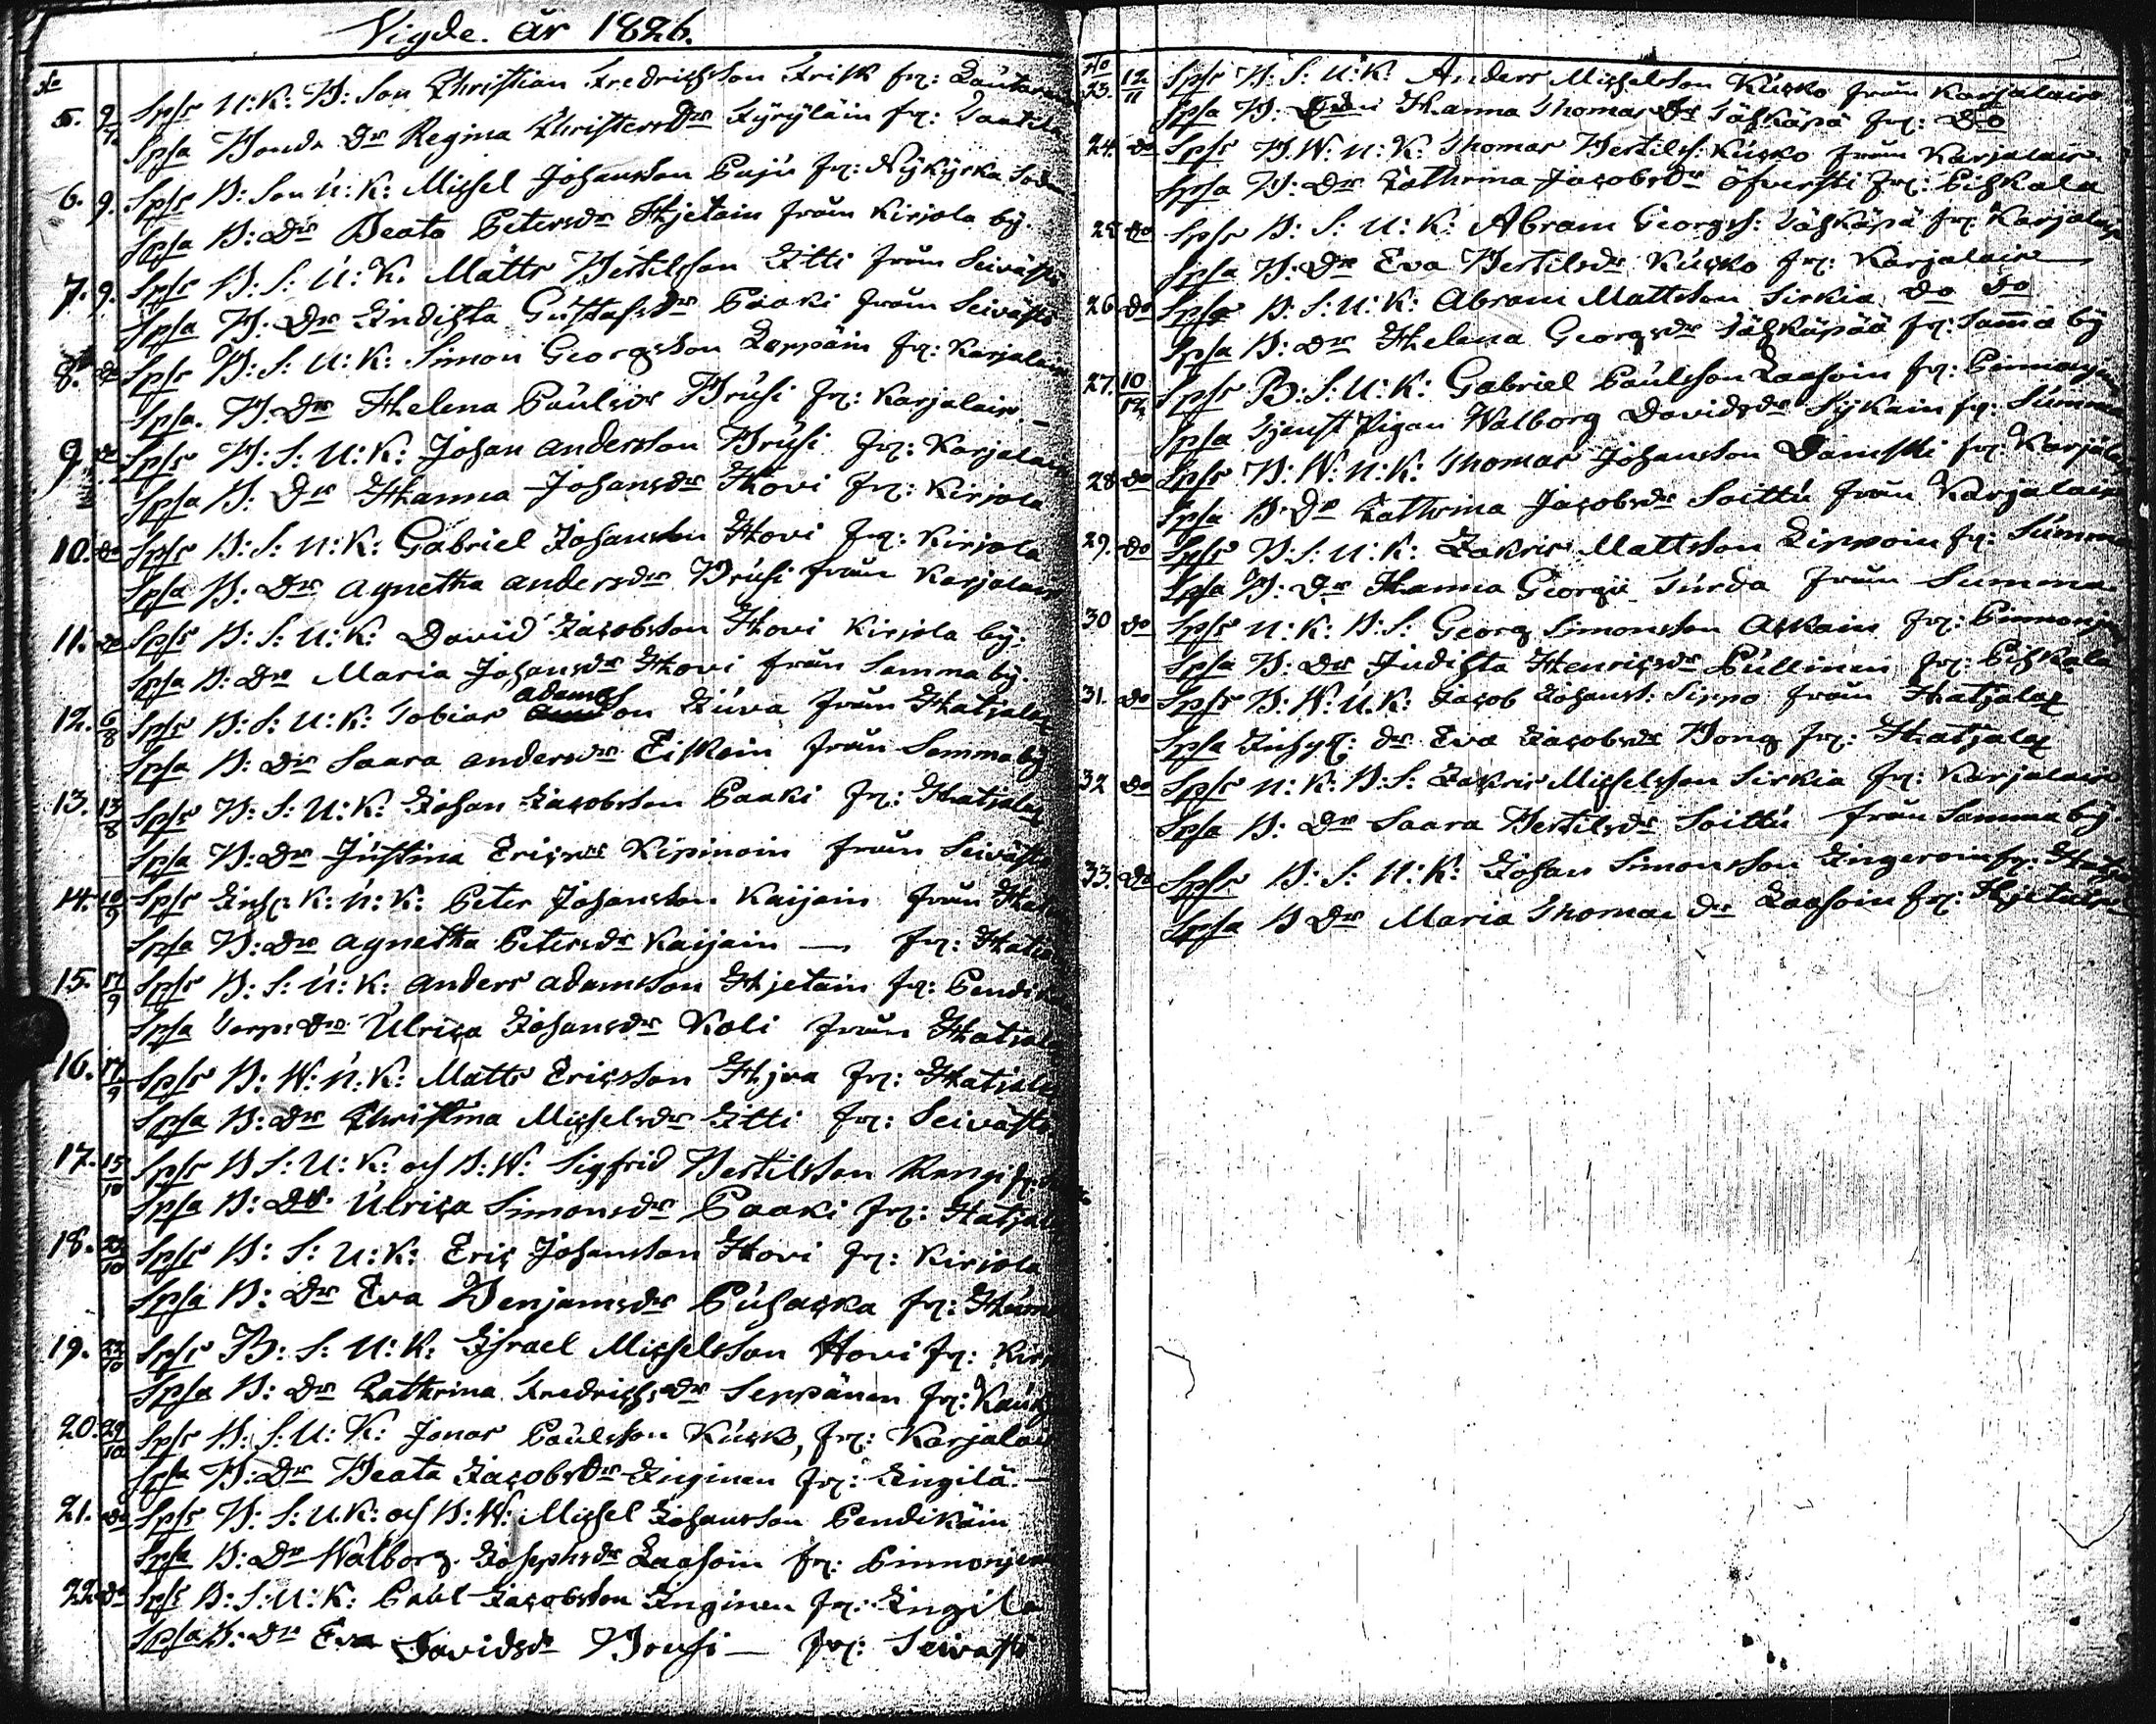 Vigde. år 1826.
No
5. 9/7. Spse U:K: B: Son Christian Fredrichsson Frisk frn:
Spsa Bonde Dr Regina Christersdr Kyryläin frn:
6. 9. Spse B: Son U: K: Michel Johansson Paju frn: Nykyrka Sockn
Spsa B: Dr Beata Petersdr Hjetain från Kirjola by.
7. 9. Spse B: S: U: K. Matts Bertilsson Itti från Seivästö
Spsa B. Dr Indichta Gustafsdr Paaki från Seivästö
8. do Spse B: S: U: K: Simon Georgsson Loppäin frn: Karjalais
Spsa. B. Dr Helena Paulsdr Brusi frn: Karjalais. —
9. do Spse B: S: U: K: Johan Andersson Brusi frn: Karjalais
Spsa B: Dr Hanna Johansdr Hovi frn: Kirjola
10. do Spse B: S: U: K: Gabriel Johansson Hovi frn: Kirjola
Spsa B: Dr Agnetha Andersdr Brusi från Karjalais
11. do Spse B: S: U: K: David Jacobsson Hovi Kirjola by:
Spsa B: Dr Maria Johansdr Hovi från Samma by.
12. 6/8 Spse B: S: U: K: Tobias Adamsson Liuva från Hatjalax
Spsa B: Dr Saara Andersdr Eiskein från Samma by
13. 13/8 Spse B: S: U: K: Johan Jacobsson Paaki frn: Hatjalax
Spsa B: Dr Justina Ericsdr Kipinoin från Seivästö
14. 10/9 Spse Inhs: K: U: K: Peter Johansson Kaijain från
Spsa B: Dr Agnetha Petersdr Kaijain — frn:
15. 17/9 Spse B: S: U: K: Anders Adamsson Hjetain frn:
Spsa Torp: Dr Ulrica Johansdr Koli från Hatjalax
16. 17/9 Spse B: W: U: K: Matts Ericsson Hjva frn: Hatjalax
Spsa B: Dr Christina Michelsdr Itti frn: Seivästö
17. 15/10 Spse B S: U: K: och B: W: Sigfrid Bertilsson Rongi
Spsa B: Dr Ulrica Simonsdr Paaki frn: Hatjalax
18. 22/10 Spse B: S: U: K: Eric Johansson Hovi frn: Kirjola
Spsa B: Dr Eva Benjamsdr Puhacka frn:
19. 22/10 Spse B: S: U: K: Israel Michelsson Hovi frn:
Spsa B: Dr Cathrina Fredrichsdr Seppänen frn:
20. 29/10 Spse B: S: U: K: Jonas Paulsson Kusko, frn: Karjalais
Spsa B: Dr Beata Jacobsdr Inginen frn: Ingilä. —
21. do Spse B: S: U: K: och B: W: Michel Johansson Pendikäin
Spsa B: Dr Walborg Josephsdr Laasoin frn:
22. do Spse B: S: U: K: Paul Jacobsson Inginen frn: Ingila
Spsa B: Dr Eva Davidsdr Brusi — frn: Seivästö
No
23. 12/11 Spse B: S: U: K: Anders Michelsson Kusko från Karjalais
Spsa B: Hanna Thomasdr Tähkäpä frn: Do
24. do Spse B. W: U: K: Thomas Bertils: Kusko från Karjalais.
Spsa B: Dr Cathrina Jacobsdr Öfversti frn: Pihkala
25 do Spse B: S: U: K: Abram Georgs: Tähkäpä frn: Karjalais
Spsa B: Dr Eva Bertilsdr Kusko frn: Karjalais —
26 do Spse B: S: U: K: Abram Mattsson Sirkia do do
Spsa B: Dr Helena Georgsdr Tähkäpää frn: Samma by
27. 10/12 Spse B: S: U: K: Gabriel Paulsson Laasoin frn:
Spsa Tjenst Pigan Walborg Davidsdr Sykain frn: Summa
28 do Spse B: W: U: K: Thomas Johansson Damski frn: Karjalais
Spsa B: Dr Cathrina Jacobsdr Soittu från Karjalais
29. do Spse B: S: U: K: Zakris Mattsson Lippoin frn: Summa
Spsa B: Dr Hanna Georgs Turda från Summa
30 do Spse U: K: B: S: Georg Simonsson Ackain frn:
Spsa B: Dr Judichta Henricsdr Pullinen frn: Pihkala
31. do Spse B: W: U: K: Jacob Johans: Sippo från Hatjalax
Spsa Inhys: Dr Eva Jacobsdr Bong frn: Hatjalax
32 do Spse U: K: B: S: Zakris Michelsson Sirkia frn: Karjalais
Spsa B: Dr Saara Bertilsdr Soittu från Samma by.
33. do Spse B: S: U: K: Johan Simonsson Ingeroin frn:
Spsa B Dr Maria Thomas dr Laasoin frn: